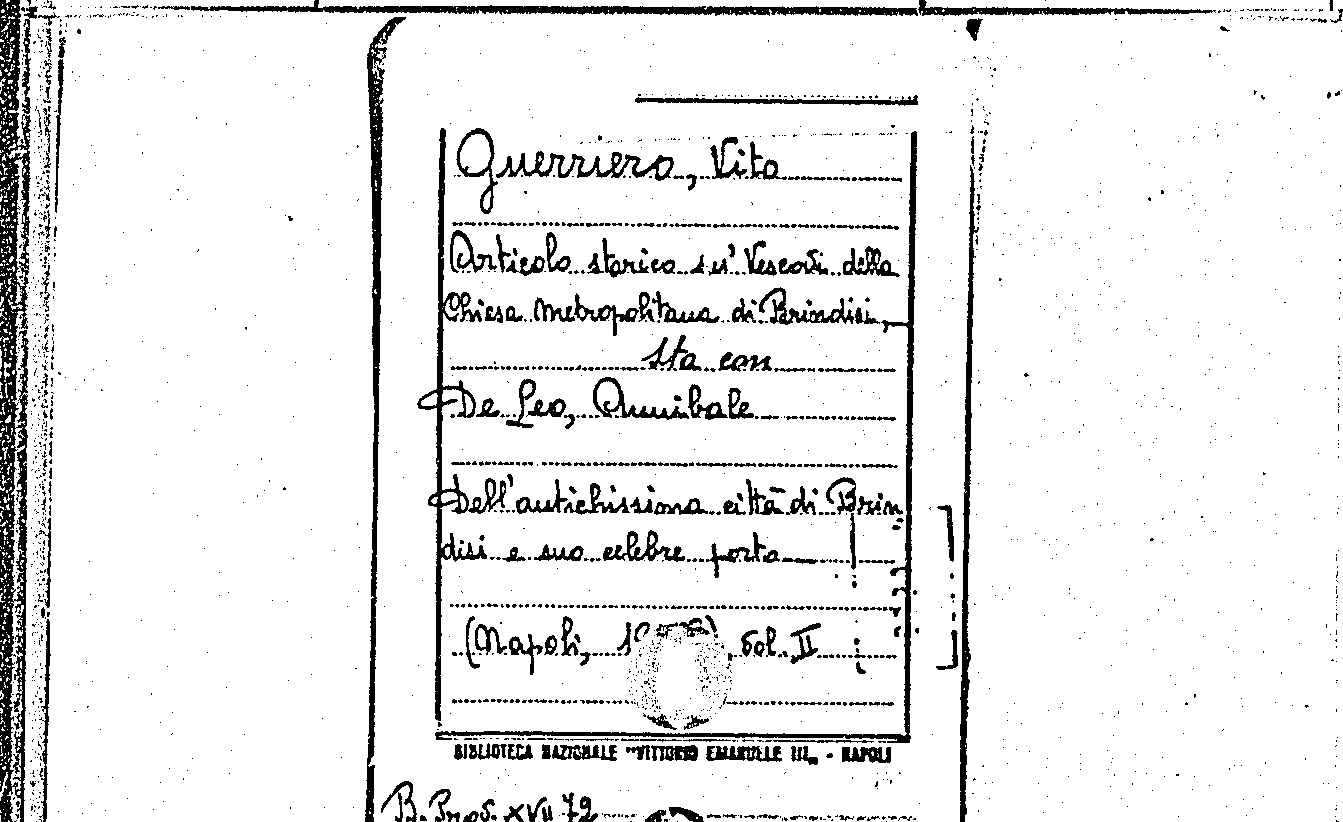 Guerriero, Vito
Articolo storico su' Vescovi della
Chiesa Metropolitana di Brindisi,
Sta con
De Leo, Annibale
Dell'antichissima città di Brin
disi e suo celebre porto
(Napoli, vol. II
BIBLIOTECA NAZIONALE "VITTORIO EMANUELE III„ - NAPOLI
B. Prov. XVII 72